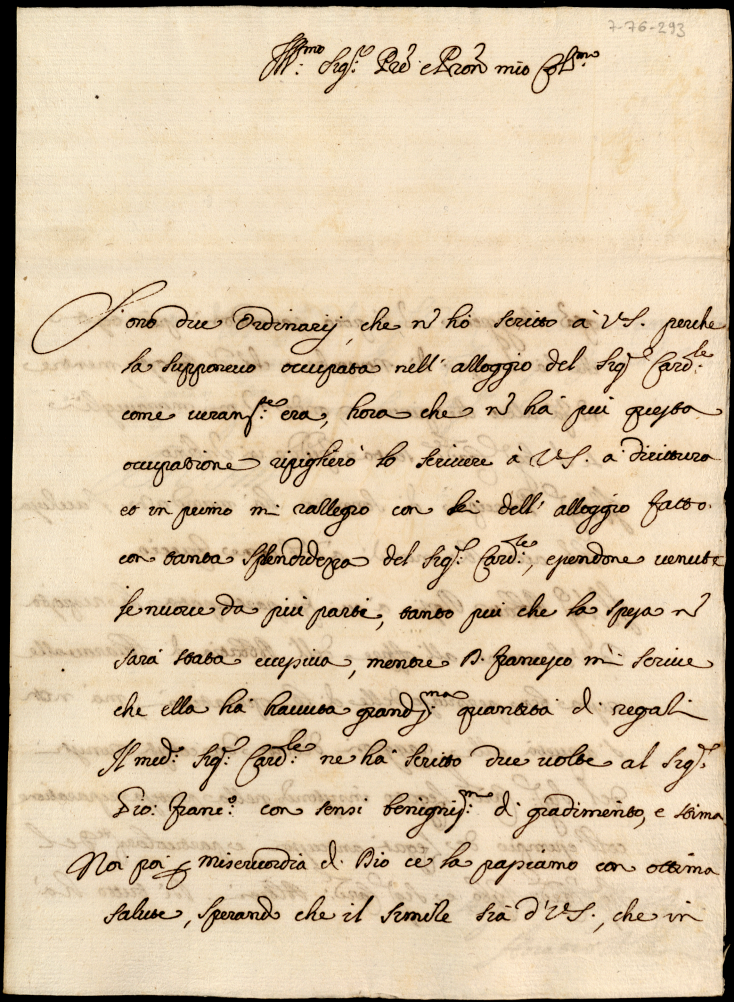 7-76-293
Ill:mo Sig:re Prẽ e Prõn mio Col:mo
Sono due Ordinarij, che ñ hò scritto à VS. perche
la supponevo occupata nell' alloggio del Sig:r Card:le
come veram:te era, hora che ñ hà più questa
occupatione ripigherò lo scrivere à VS. a dirittura
et in primo mi rallegro con lei dell' alloggio fatto
con tanta splendidezza del Sig:r Card:le, essendone venute
le nuove da più parti, tanto più che la spesa ñ
sarà stata eccessiva, mentre D. Francesco mi scrive
che ella hà havuta grandiss:ma quantità di regali
Il med:o Sig:r Card:le ne hà scritto due volte al Sig:r
Gio: Franc:o con sensi beniguiss:mi di gradimento, e stima
Noi poi p misericordia di Dio ce la passiamo con ottima
salute, sperando che il simile sia d'VS., che in